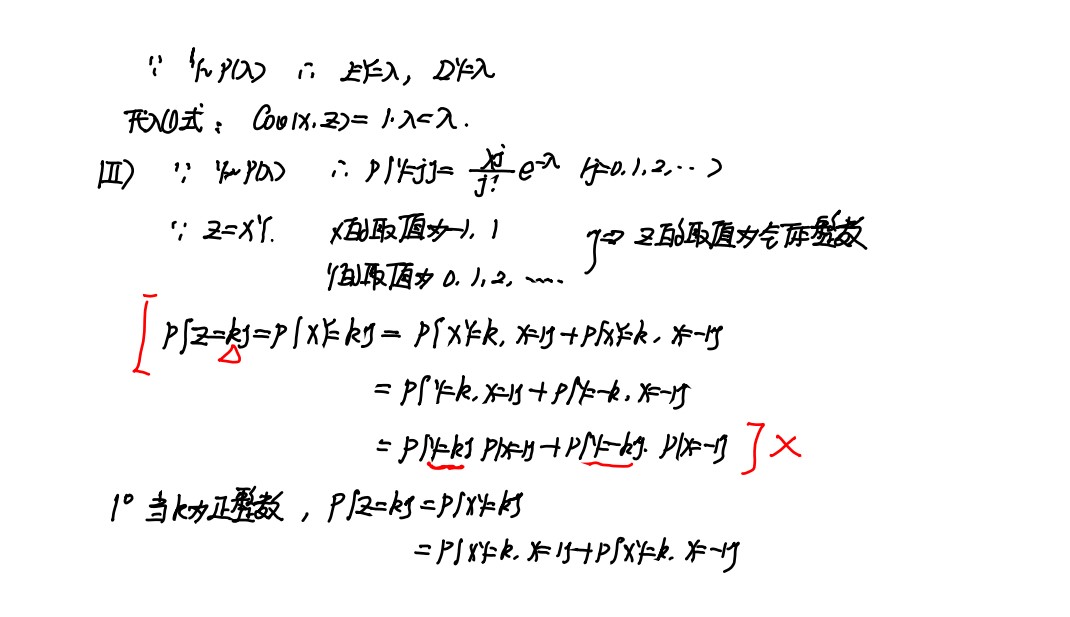 ∵ Y~P(λ) ∴ EY=λ, DY=λ
代入①式: Cov(X,Z)=1·λ=λ.
(Ⅱ) ∵ Y~P(λ) ∴ P{Y=j}=λ^j/j! e^{-λ} (j=0,1,2,⋯)
∵ Z=XY. X的取值为-1, 1
Y的取值为 0, 1, 2, ⋯⋯. } ⇒ Z的取值为全体整数
[ P{Z=k}=P{XY=k}= P{XY=k, X=1}+P{XY=k, X=-1}
△
= P{Y=k, X=1}+P{Y=-k, X=-1}
= P{Y=k} P{X=1}+P{Y=-k}· P{X=-1} ] ×
1° 当k为正整数, P{Z=k}=P{XY=k}
=P{XY=k, X=1}+P{XY=k, X=-1}